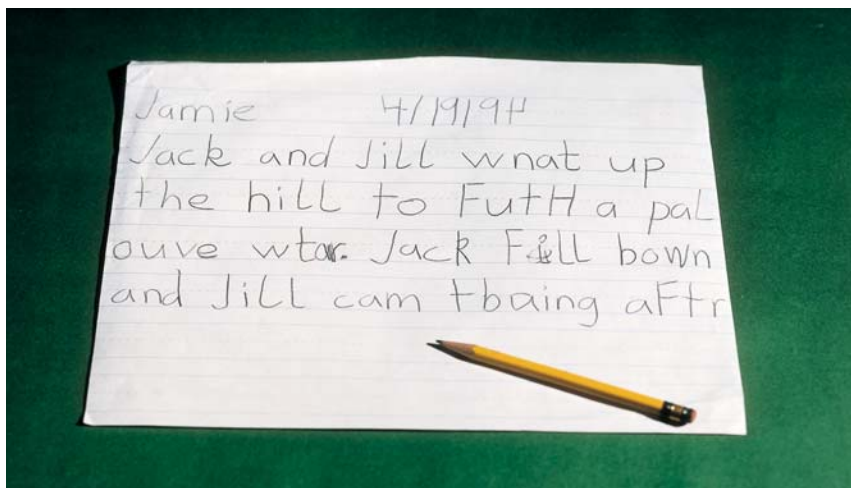 Jamie 4/19/94
Jack and Jill wnat up
the hill to FutH a pal
ouve wtar. Jack Fell bown
and Jill cam tbaing aFtr